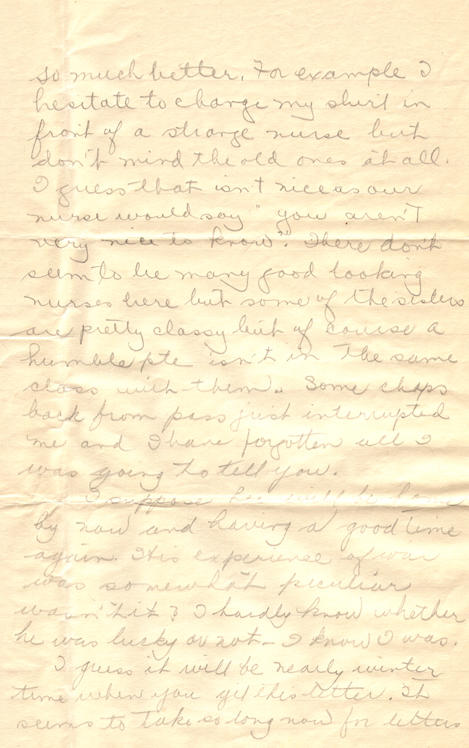 so much better. For example I
hesitate to change my shirt in
front of a strange nurse but
don't mind the old ones at all.
I guess that isn't nice as our
nurse would say "you aren't
very nice to know". There don't
seem to be many good looking
nurses here but some of the sisters
are pretty classy but of course a
humble pte isn't in the same
class with them. Some chaps
back from pass just interrupted
me and I have forgotten all I
was going to tell you.
I suppose will be home
by now and having a good time
again. His experience of war
was somewhat peculiar
wasn't it? I hardly know whether
he was lucky or not - I know I was.
I guess it will be nearly winter
time when you get this letter. It
seems to take so long now for letters